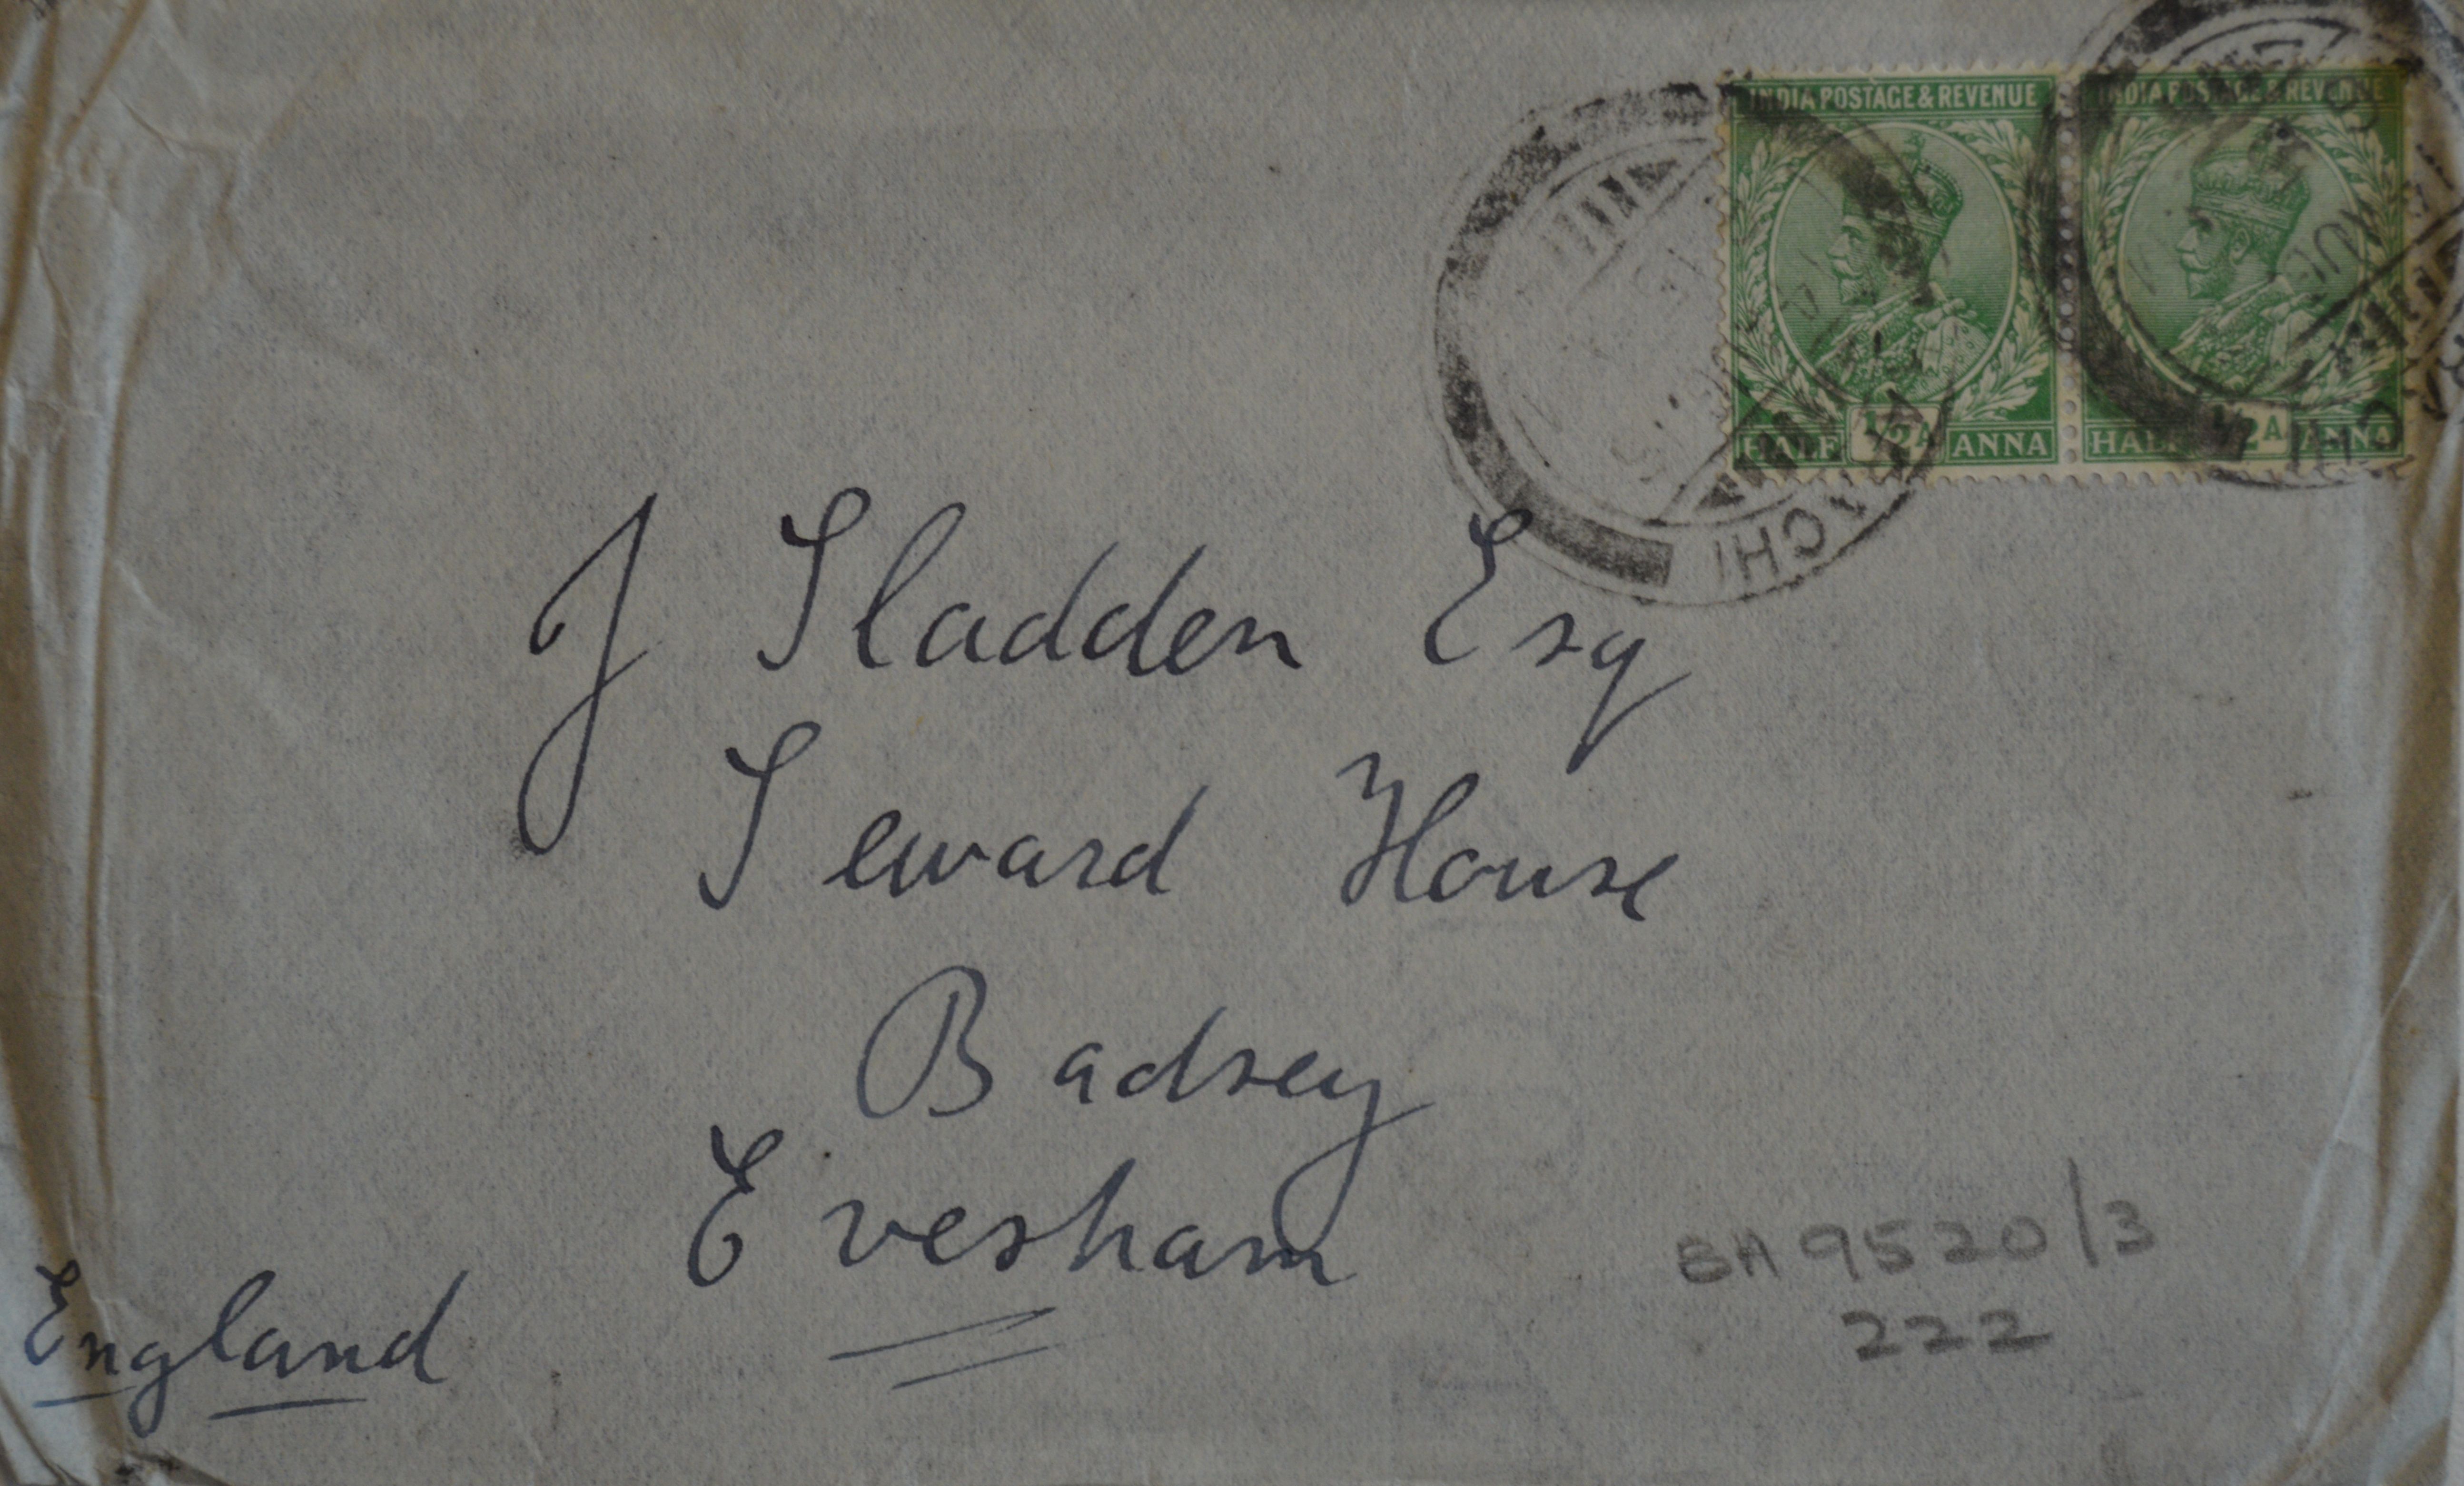 INDIA POSTAGE & REVENUE INDIA POSTAGE & REVENUE
HALF 1/2A ANNA HALF 1/2A ANNA
J Sladden Esq
Seward House
Badsey
Evesham
England
BA 9520/3
222